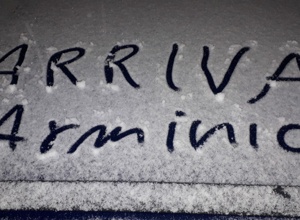 ARRIVA
Arminio